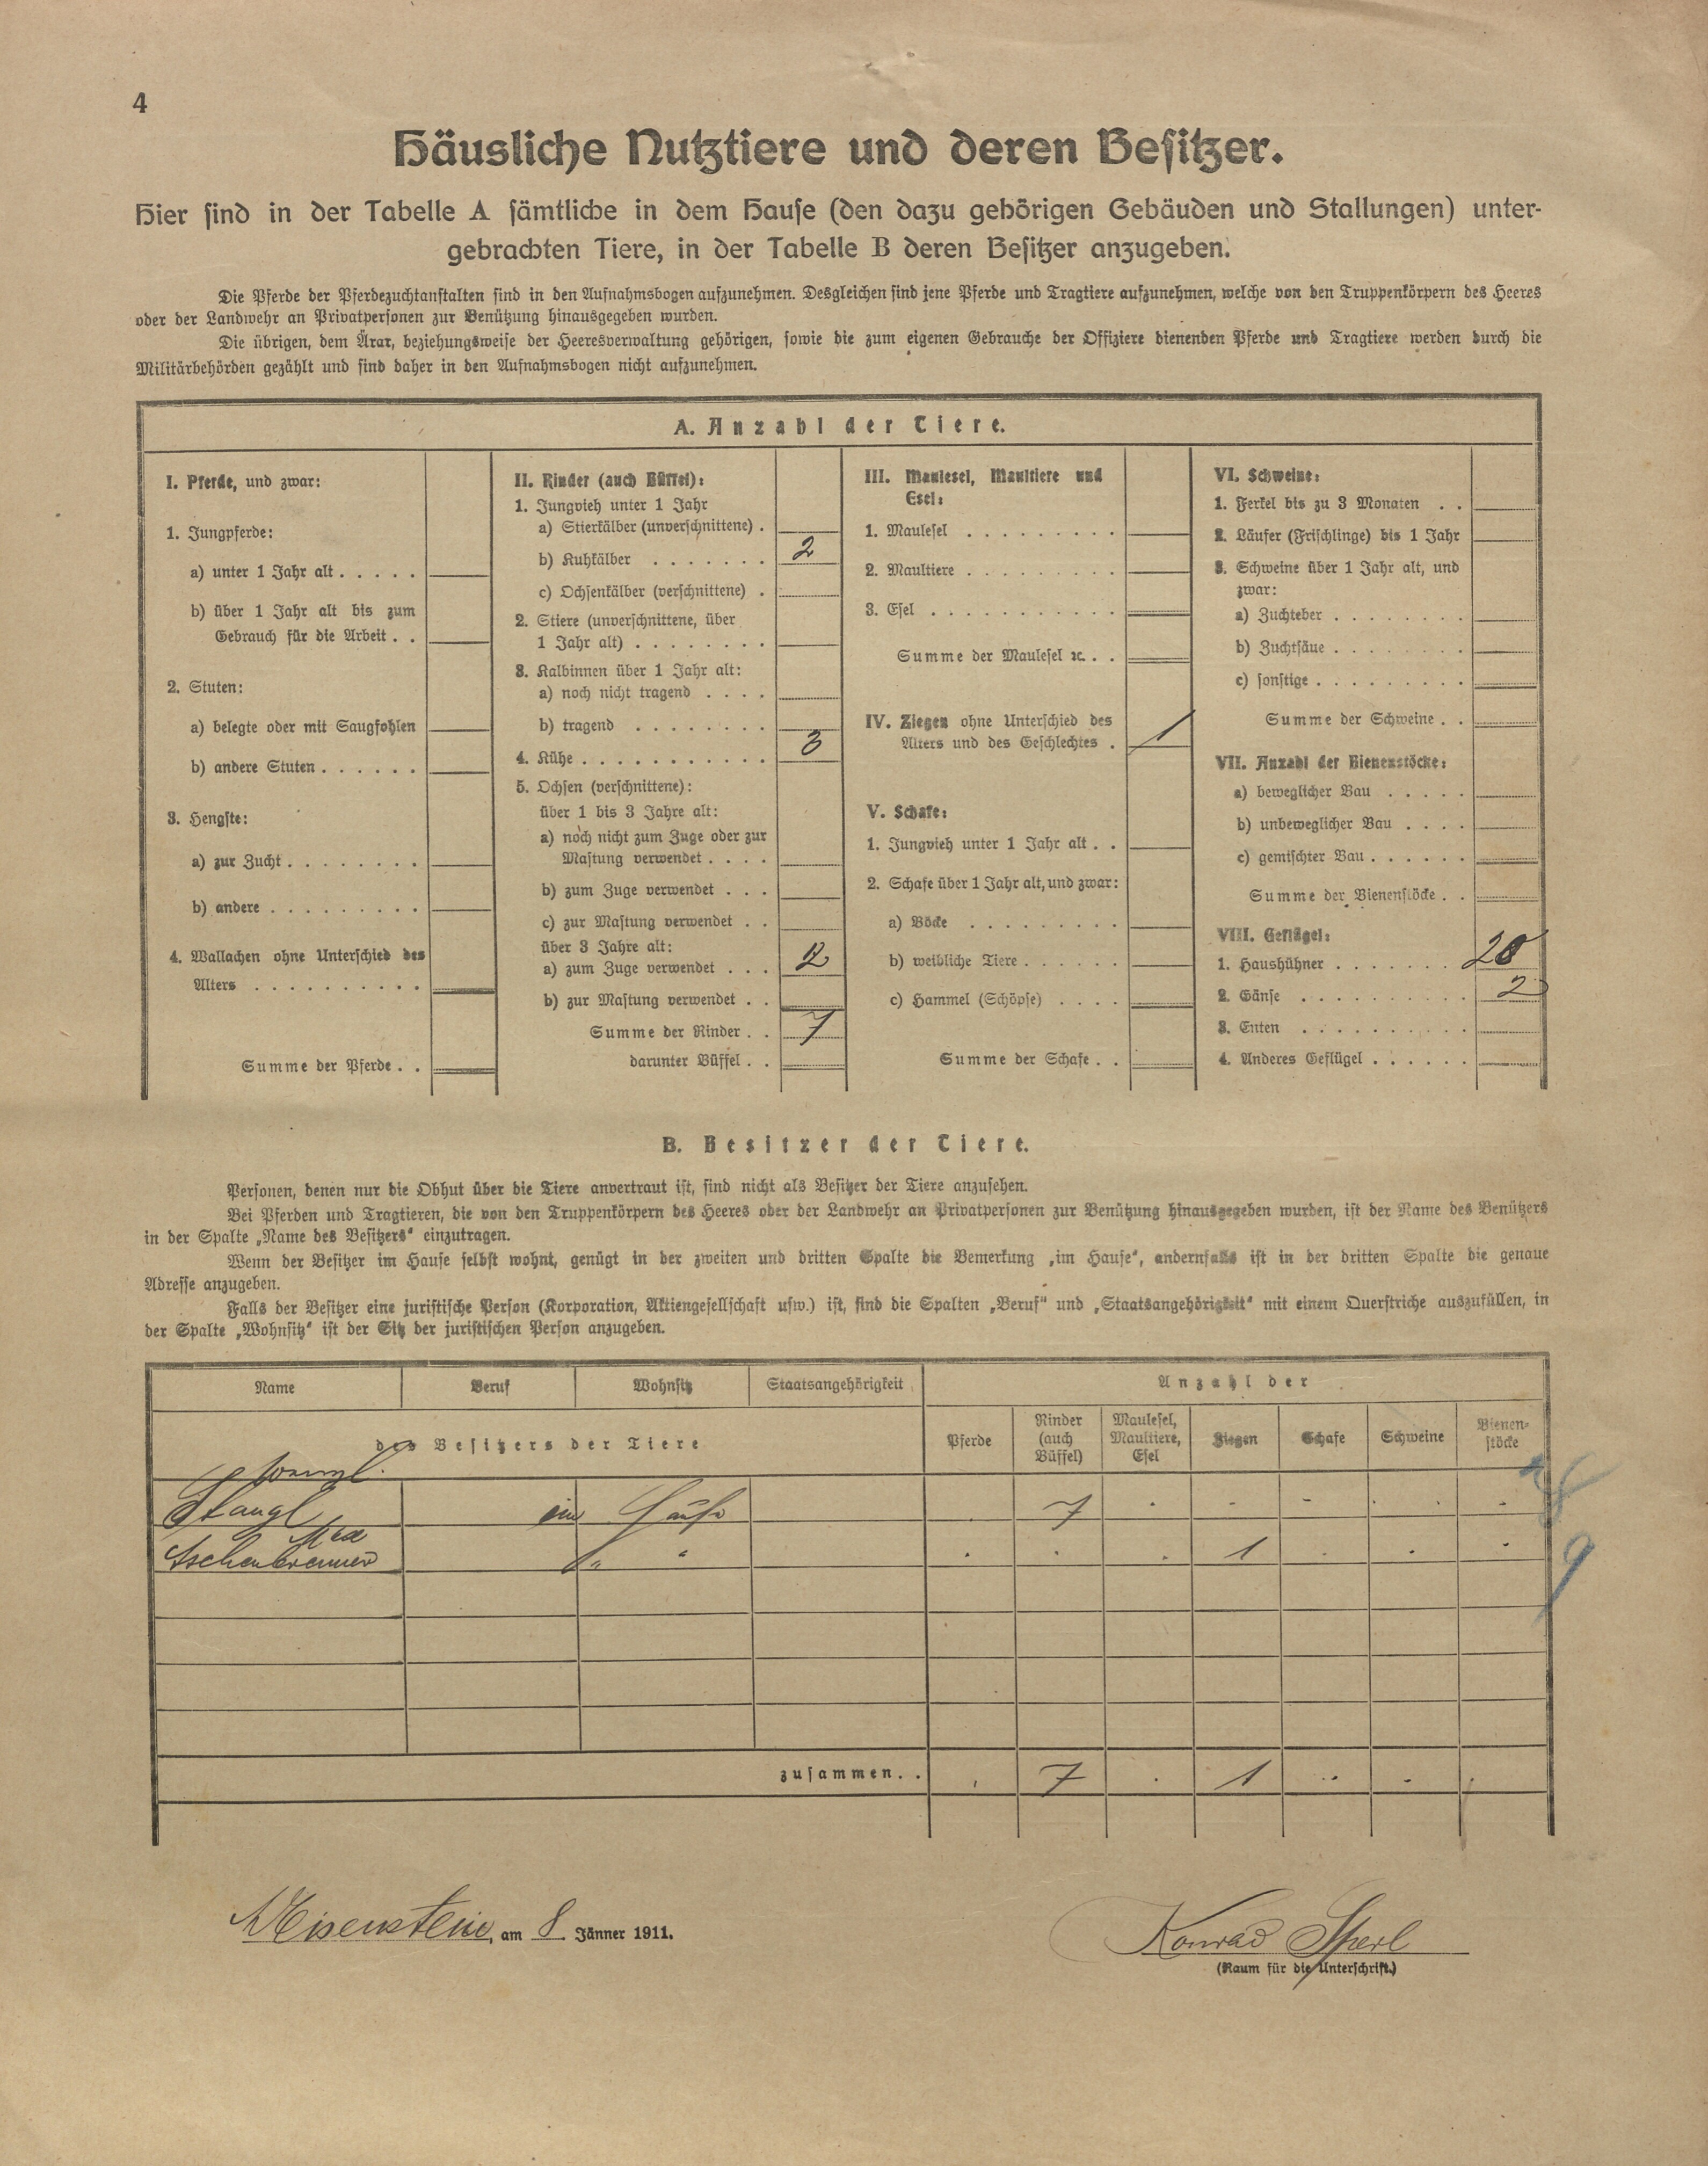 4
Häusliche Nutztiere und deren Besitzer.
Hier sind in der Tabelle A sämtliche in dem Hause (den dazu gehörigen Gebäuden und Stallungen) unter-
gebrachten Tiere, in der Tabelle B deren Besitzer anzugeben.
Die Pferde der Pferdezuchtanstalten sind in den Aufnahmsbogen aufzunehmen. Desgleichen sind jene Pferde und Tragtiere aufzunehmen, welche von den Truppenkörpern des Heeres
oder der Landwehr an Privatpersonen zur Benützung hinausgegeben wurden.
Die übrigen, dem Ärar, beziehungsweise der Heeresverwaltung gehörigen, sowie die zum eigenen Gebrauche der Offiziere dienenden Pferde und Tragtiere werden durch die
Militärbehörden gezählt und sind daher in den Aufnahmsbogen nicht aufzunehmen.
A. Anzahl der Tiere.
I. Pferde, und zwar:
1. Jungpferde:
a) unter 1 Jahr alt . . . . .
b) über 1 Jahr alt bis zum
Gebrauch für die Arbeit . .
2. Stuten:
a) belegte oder mit Saugfohlen
b) andere Stuten . . . . . .
3. Hengste:
a) zur Zucht . . . . . . . .
b) andere . . . . . . . . .
4. Wallachen ohne Unterschied des
Alters . . . . . . . . . .
Summe der Pferde . .
II. Rinder (auch Büffel):
1. Jungvieh unter 1 Jahr
a) Stierkälber (unverschnittene) .
b) Kuhkälber . . . . . . . 2
c) Ochsenkälber (verschnittene) .
2. Stiere (unverschnittene, über
1 Jahr alt) . . . . . . . .
3. Kalbinnen über 1 Jahr alt:
a) noch nicht tragend . . . .
b) tragend . . . . . . . .
4. Kühe . . . . . . . . . . . 3
5. Ochsen (verschnittene):
über 1 bis 3 Jahre alt:
a) noch nicht zum Zuge oder zur
Mastung verwendet . . . .
b) zum Zuge verwendet . . .
c) zur Mastung verwendet . .
über 3 Jahre alt:
a) zum Zuge verwendet . . . 2
b) zur Mastung verwendet . .
Summe der Rinder . . 7
darunter Büffel . .
III. Maulesel, Maultiere und
Esel:
1. Maulesel . . . . . . . . .
2. Maultiere . . . . . . . . .
3. Esel . . . . . . . . . . .
Summe der Maulesel ꝛc. . .
IV. Ziegen ohne Unterschied des
Alters und des Geschlechtes . 1
V. Schafe:
1. Jungvieh unter 1 Jahr alt . .
2. Schafe über 1 Jahr alt, und zwar:
a) Böcke . . . . . . . . .
b) weibliche Tiere . . . . . .
c) Hammel (Schöpse) . . . .
Summe der Schafe . .
VI. Schweine:
1. Ferkel bis zu 3 Monaten . .
2. Läufer (Frischlinge) bis 1 Jahr
3. Schweine über 1 Jahr alt, und
zwar:
a) Zuchteber . . . . . . . .
b) Zuchtsäue . . . . . . . .
c) sonstige . . . . . . . . .
Summe der Schweine . .
VII. Anzahl der Bienenstöcke:
a) beweglicher Bau . . . . .
b) unbeweglicher Bau . . . .
c) gemischter Bau . . . . . .
Summe der Bienenstöcke . .
VIII. Geflügel:
1. Haushühner . . . . . . .
2. Gänse . . . . . . . . . . 2
3. Enten . . . . . . . . . .
4. Anderes Geflügel . . . . . .
B. Besitzer der Tiere.
Personen, denen nur die Obhut über die Tiere anvertraut ist, sind nicht als Besitzer der Tiere anzusehen.
Bei Pferden und Tragtieren, die von den Truppenkörpern des Heeres oder der Landwehr an Privatpersonen zur Benützung hinausgegeben wurden, ist der Name des Benützers
in der Spalte „Name des Besitzers“ einzutragen.
Wenn der Besitzer im Hause selbst wohnt, genügt in der zweiten und dritten Spalte die Bemerkung „im Hause“, andernfalls ist in der dritten Spalte die genaue
Adresse anzugeben.
Falls der Besitzer eine juristische Person (Korporation, Aktiengesellschaft usw.) ist, sind die Spalten „Beruf“ und „Staatsangehörigkeit“ mit einem Querstriche auszufüllen, in
der Spalte „Wohnsitz“ ist der Sitz der juristischen Person anzugeben.
Name Beruf Wohnsitz Staatsangehörigkeit Anzahl der
des Besitzers der Tiere
Pferde Rinder (auch Büffel) Maulesel, Maultiere, Esel Ziegen Schafe Schweine Bienen-stöcke
Wenzl
Stangl im Hause 7 . - - . -
Aschenbrenner „ “ . . . 1 . . .
9
zusammen . . . 7 . 1 . . .
Eisenstein, am 8 Jänner 1911.
Konrad Sperl
(Raum für die Unterschrift.)